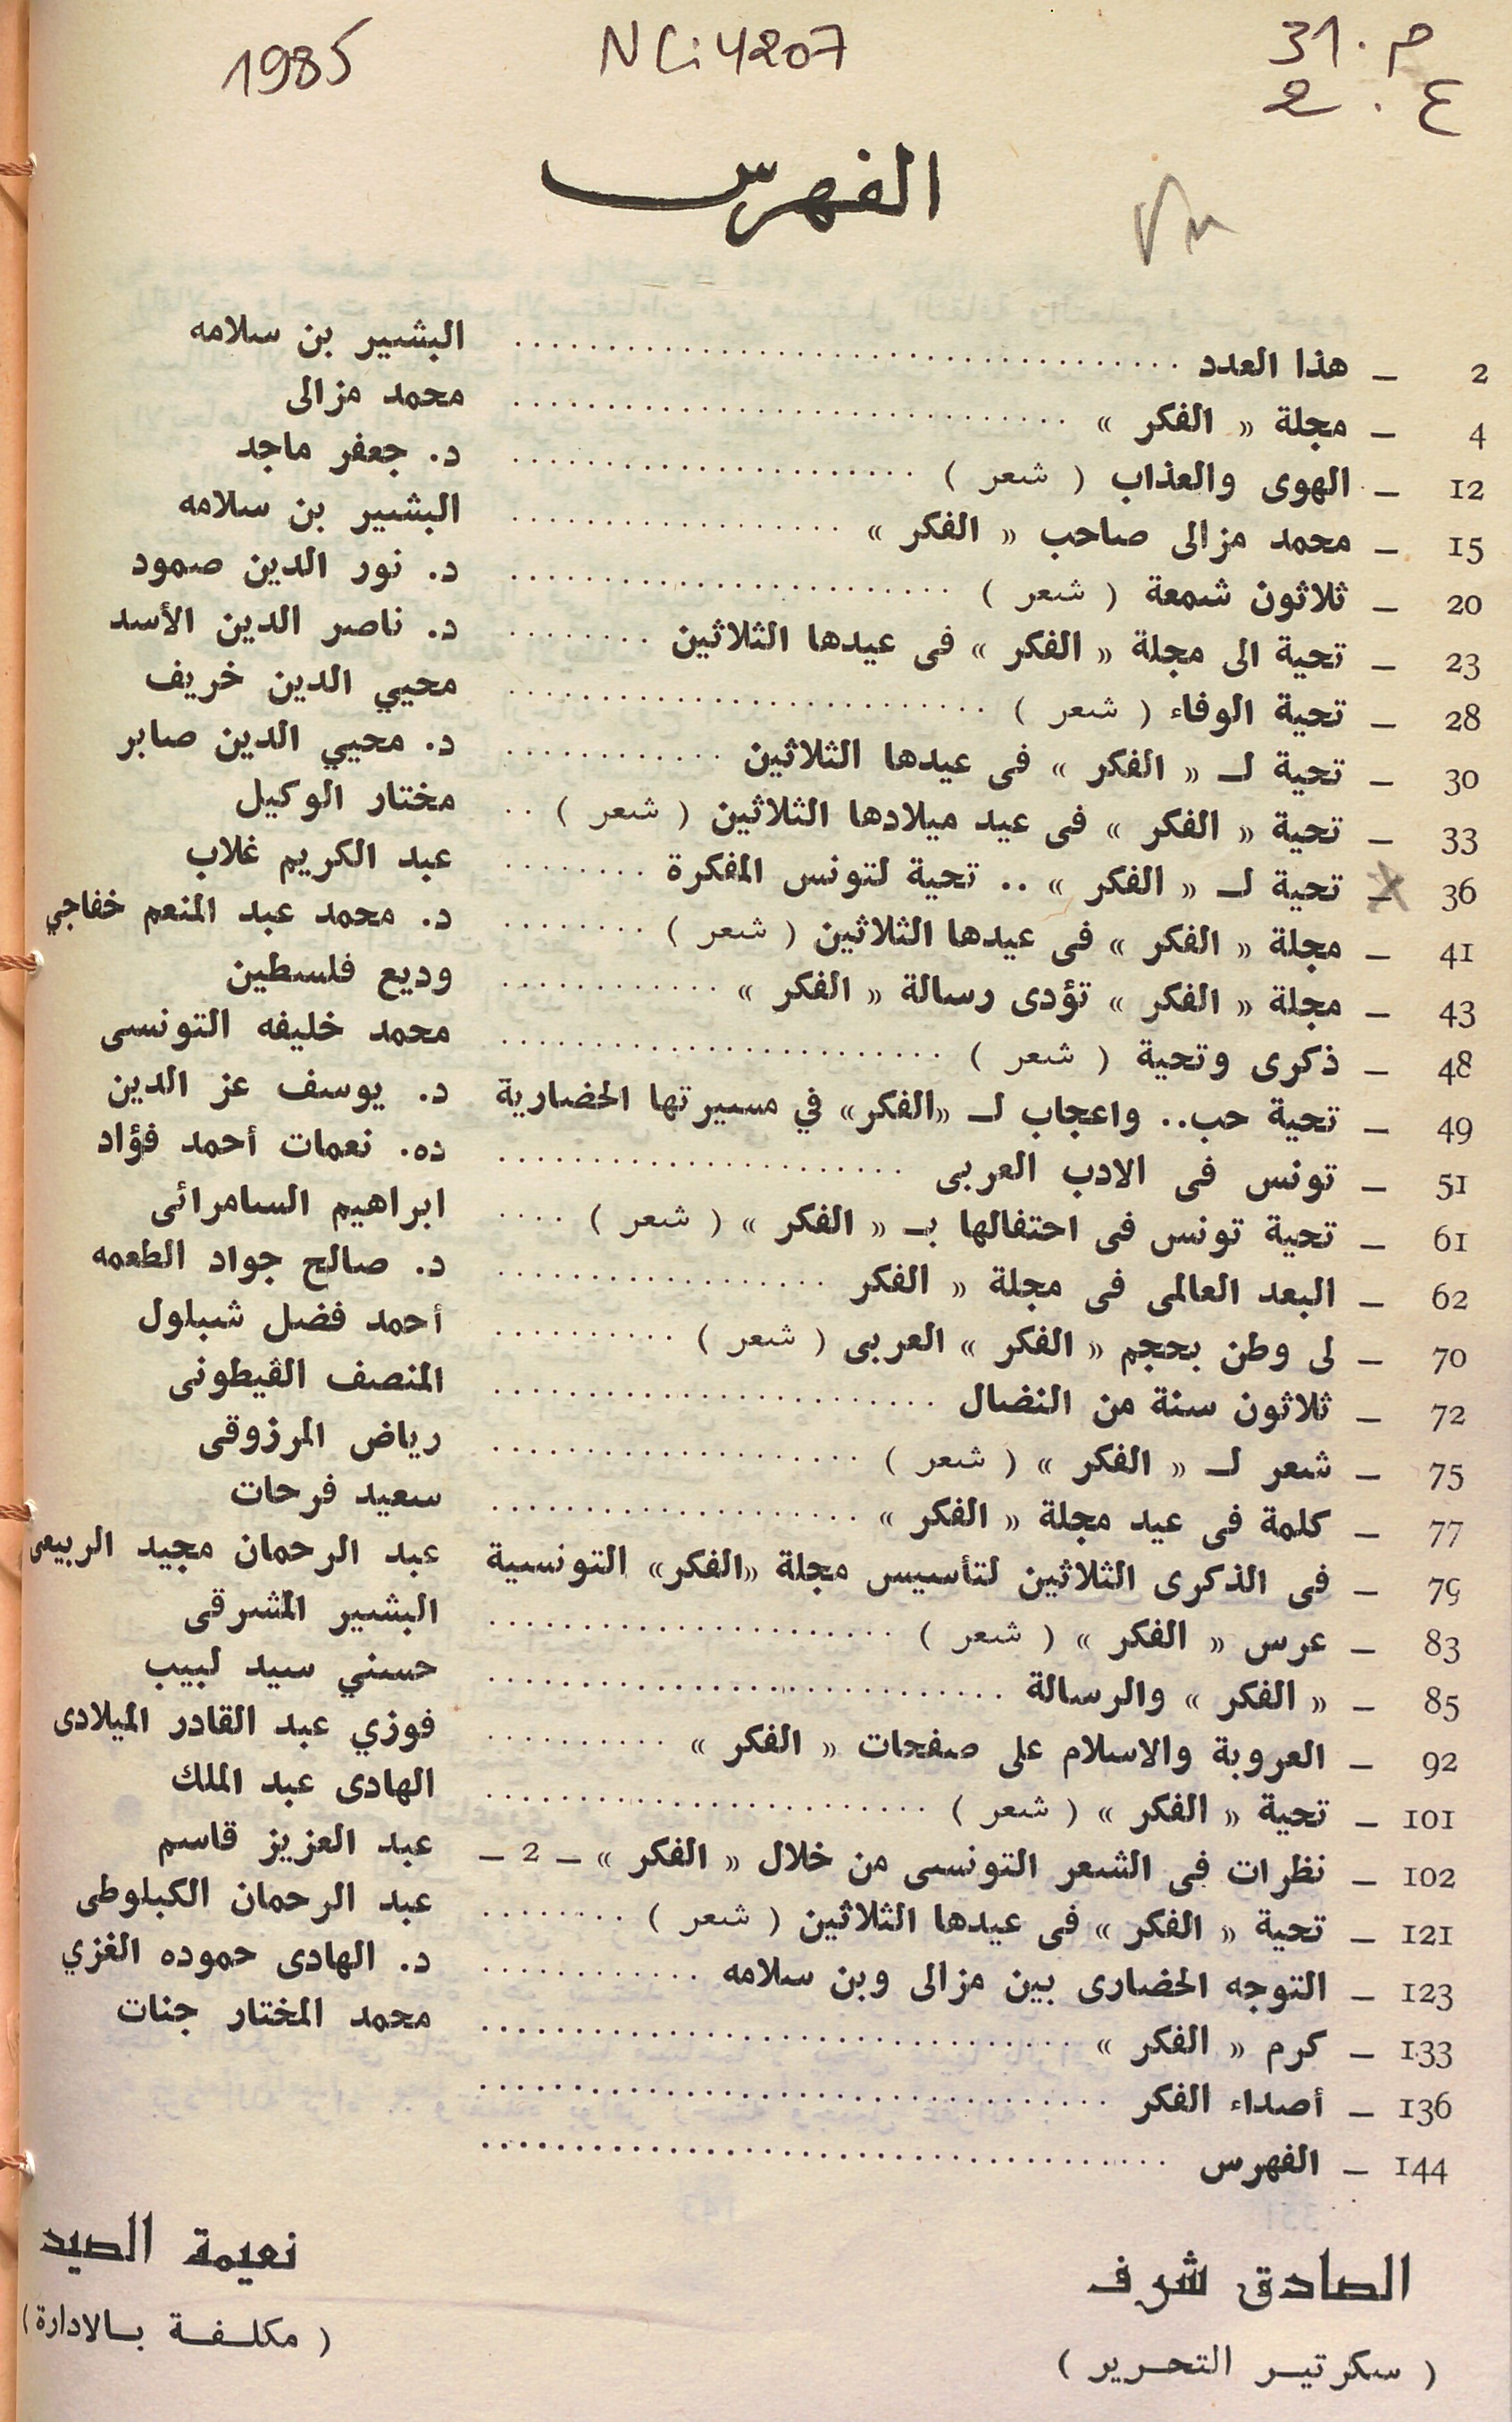 م . 31
ع . 2
NCi 4207
1985
الفهرس
2 – هذا العدد ........ البشير بن سلامه
4 – مجلة « الفكر » ........ محمد مزالى
12 – الهوى والعذاب ( شعر ) ........ د. جعفر ماجد
15 – محمد مزالى صاحب « الفكر » ........ البشير بن سلامه
20 – ثلاثون شمعة ( شعر ) ........ د. نور الدين صمود
23 – تحية الى مجلة « الفكر » فى عيدها الثلاثين ........ د. ناصر الدين الأسد
28 – تحية الوفاء ( شعر ) ........ محيي الدين خريف
30 – تحية لـ « الفكر » فى عيدها الثلاثين ........ د. محيي الدين صابر
33 – تحية « الفكر » فى عيد ميلادها الثلاثين ( شعر ) .. مختار الوكيل
36 – تحية لـ « الفكر » .. تحية لتونس المفكرة ........ عبد الكريم غلاب
41 – مجلة « الفكر » فى عيدها الثلاثين ( شعر ) ........ د. محمد عبد المنعم خفاجي
43 – مجلة « الفكر » تؤدى رسالة « الفكر » ........ وديع فلسطين
48 – ذكرى وتحية ( شعر ) ........ محمد خليفه التونسى
49 – تحية حب.. واعجاب لـ «الفكر» في مسيرتها الحضارية د. يوسف عز الدين
51 – تونس فى الادب العربى ........ ده. نعمات أحمد فؤاد
61 – تحية تونس فى احتفالها بـ « الفكر » ( شعر ) .... ابراهيم السامرائى
62 – البعد العالمى فى مجلة « الفكر ........ د. صالح جواد الطعمه
70 – لى وطن بحجم « الفكر » العربى ( شعر ) ........ أحمد فضل شبلول
72 – ثلاثون سنة من النضال ........ المنصف الڤيطونى
75 – شعر لـ « الفكر » ( شعر ) ........ رياض المرزوقى
77 – كلمة فى عيد مجلة « الفكر » ........ سعيد فرحات
79 – فى الذكرى الثلاثين لتأسيس مجلة «الفكر» التونسية عبد الرحمان مجيد الربيعى
83 – عرس « الفكر » ( شعر ) ........ البشير المشرقى
85 – « الفكر » والرسالة ........ حسني سيد لبيب
92 – العروبة والاسلام على صفحات « الفكر » ........ فوزي عبد القادر الميلادى
101 – تحية « الفكر » ( شعر ) ........ الهادى عبد الملك
102 – نظرات فى الشعر التونسى من خلال « الفكر » – 2 – عبد العزيز قاسم
121 – تحية « الفكر » فى عيدها الثلاثين ( شعر ) ........ عبد الرحمان الكبلوطى
123 – التوجه الحضارى بين مزالى وبن سلامه ........ د. الهادى حموده الغزي
133 – كرم « الفكر » ........ محمد المختار جنات
136 – أصداء الفكر ........
144 – الفهرس ........
الصادق شرف
( سكرتيـر التحـرير )
نعيمة الصيد
( مكلـفـة بـالادارة )